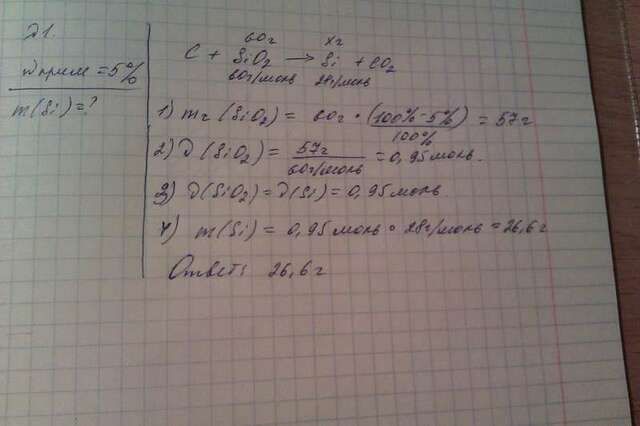 Д1.
ω прим = 5%
m(Si) = ?
60г xг
C + SiO2 → Si + CO2
60г/моль 28г/моль
1) mг (SiO2) = 60г • (100% - 5%) / 100% = 57г
2) ν (SiO2) = 57г / 60г/моль = 0,95 моль.
3) ν(SiO2) = ν(Si) = 0,95 моль
4) m(Si) = 0,95 моль • 28г/моль = 26,6г
Ответ: 26,6г